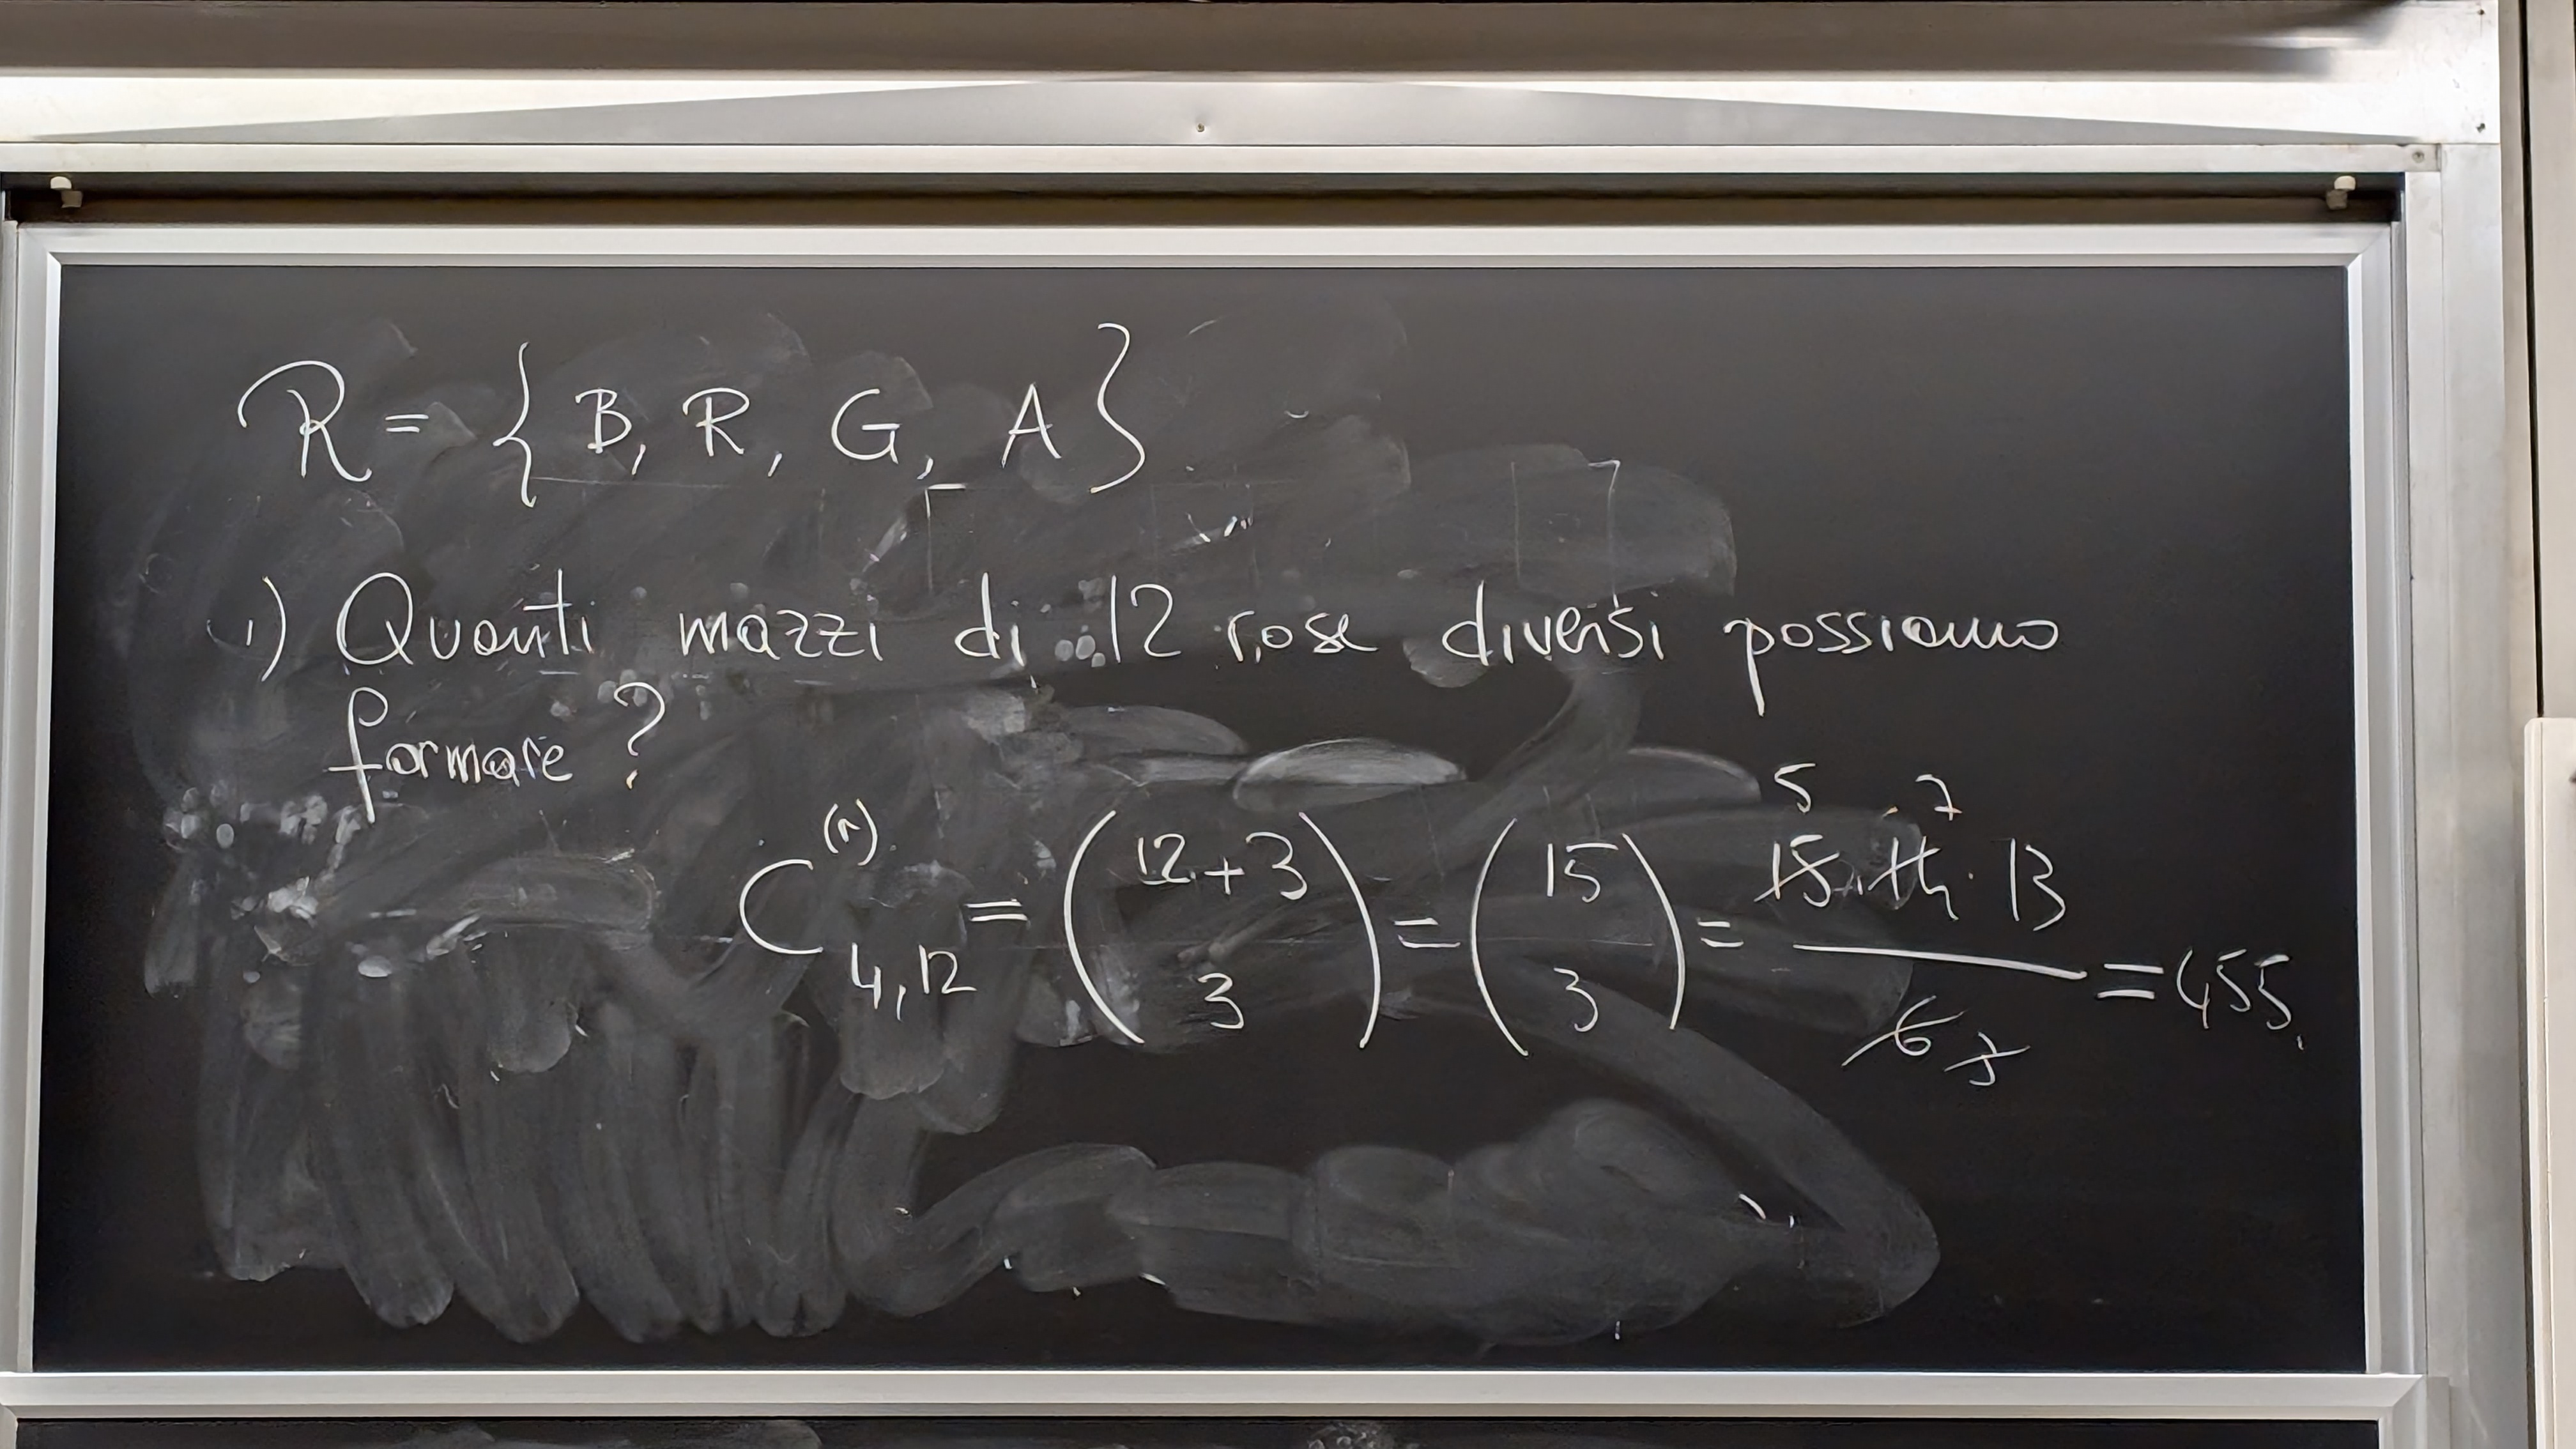 R = { B, R, G, A }.
1) Quanti mazzi di 12 rose diversi possiamo
formare ?
C^{(r)}_{4,12} = \binom{12+3}{3} = \binom{15}{3} = \frac{\overset{5}{\cancel{15}} \cdot \overset{7}{\cancel{14}} \cdot 13}{\cancel{6} \cancel{3}} = 455.